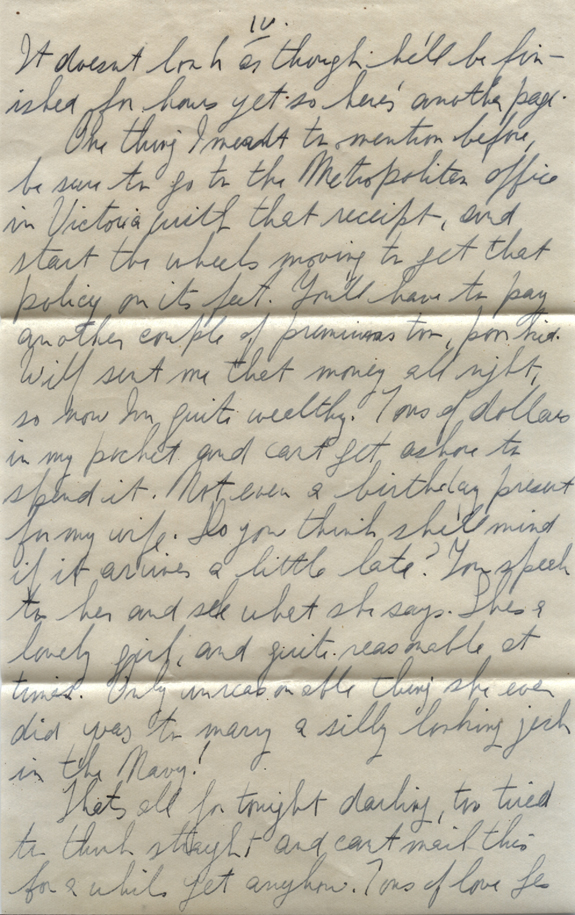 IV.
It doesn't look as though he'll be fin-
ished for hours yet so here's another page.
One thing I meant to mention before,
be sure to go to the Metropolitan office
in Victoria with that receipt, and
start the wheels moving to get that
policy on its feet. You'll have to pay
another couple of premiums too, poor kid.
Will sent me that money all right,
so now I'm quite wealthy. Tons of dollars
in my pocket and can't get ashore to
spend it. Not even a birthday present
for my wife. Do you think she'll mind
if it arrives a little late? You speak
to her and see what she says. She's a
lovely girl, and quite reasonable at
times. Only unreasonable thing she ever
did was to marry a silly looking jerk
in the Navy!
That's all for tonight darling, too tired
to think straight and can't mail this
for a while yet anyhow. Tons of love Les